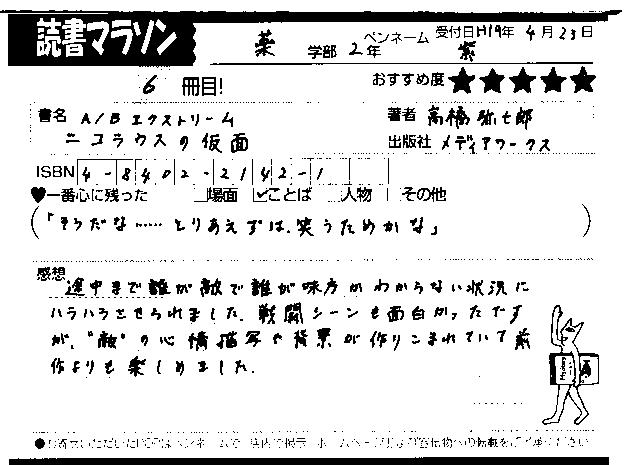 読書マラソン
薬 学部 2年 ペンネーム 紫 受付日H19年 4月23日
6 冊目! おすすめ度★★★★★
書名 A/B エクストリーム 著者 高橋 弥七郎
ニコラウスの仮面 出版社 メディアワークス
ISBN 4-8402-2142-1
♥一番心に残った □場面 ☑ことば □人物 □その他
(「そうだな……とりあえずは、笑うためかな」)
感想
途中まで誰が敵で誰が味方かわからない状況に
ハラハラさせられました。戦闘シーンも面白かったです
が、"敵"の心情描写や背景が作りこまれていて前
作よりも楽しめました。
●お寄せいただいたPOPはペンネームで、店内で掲示・ホームページおよび宣伝物への転載をご了承ください